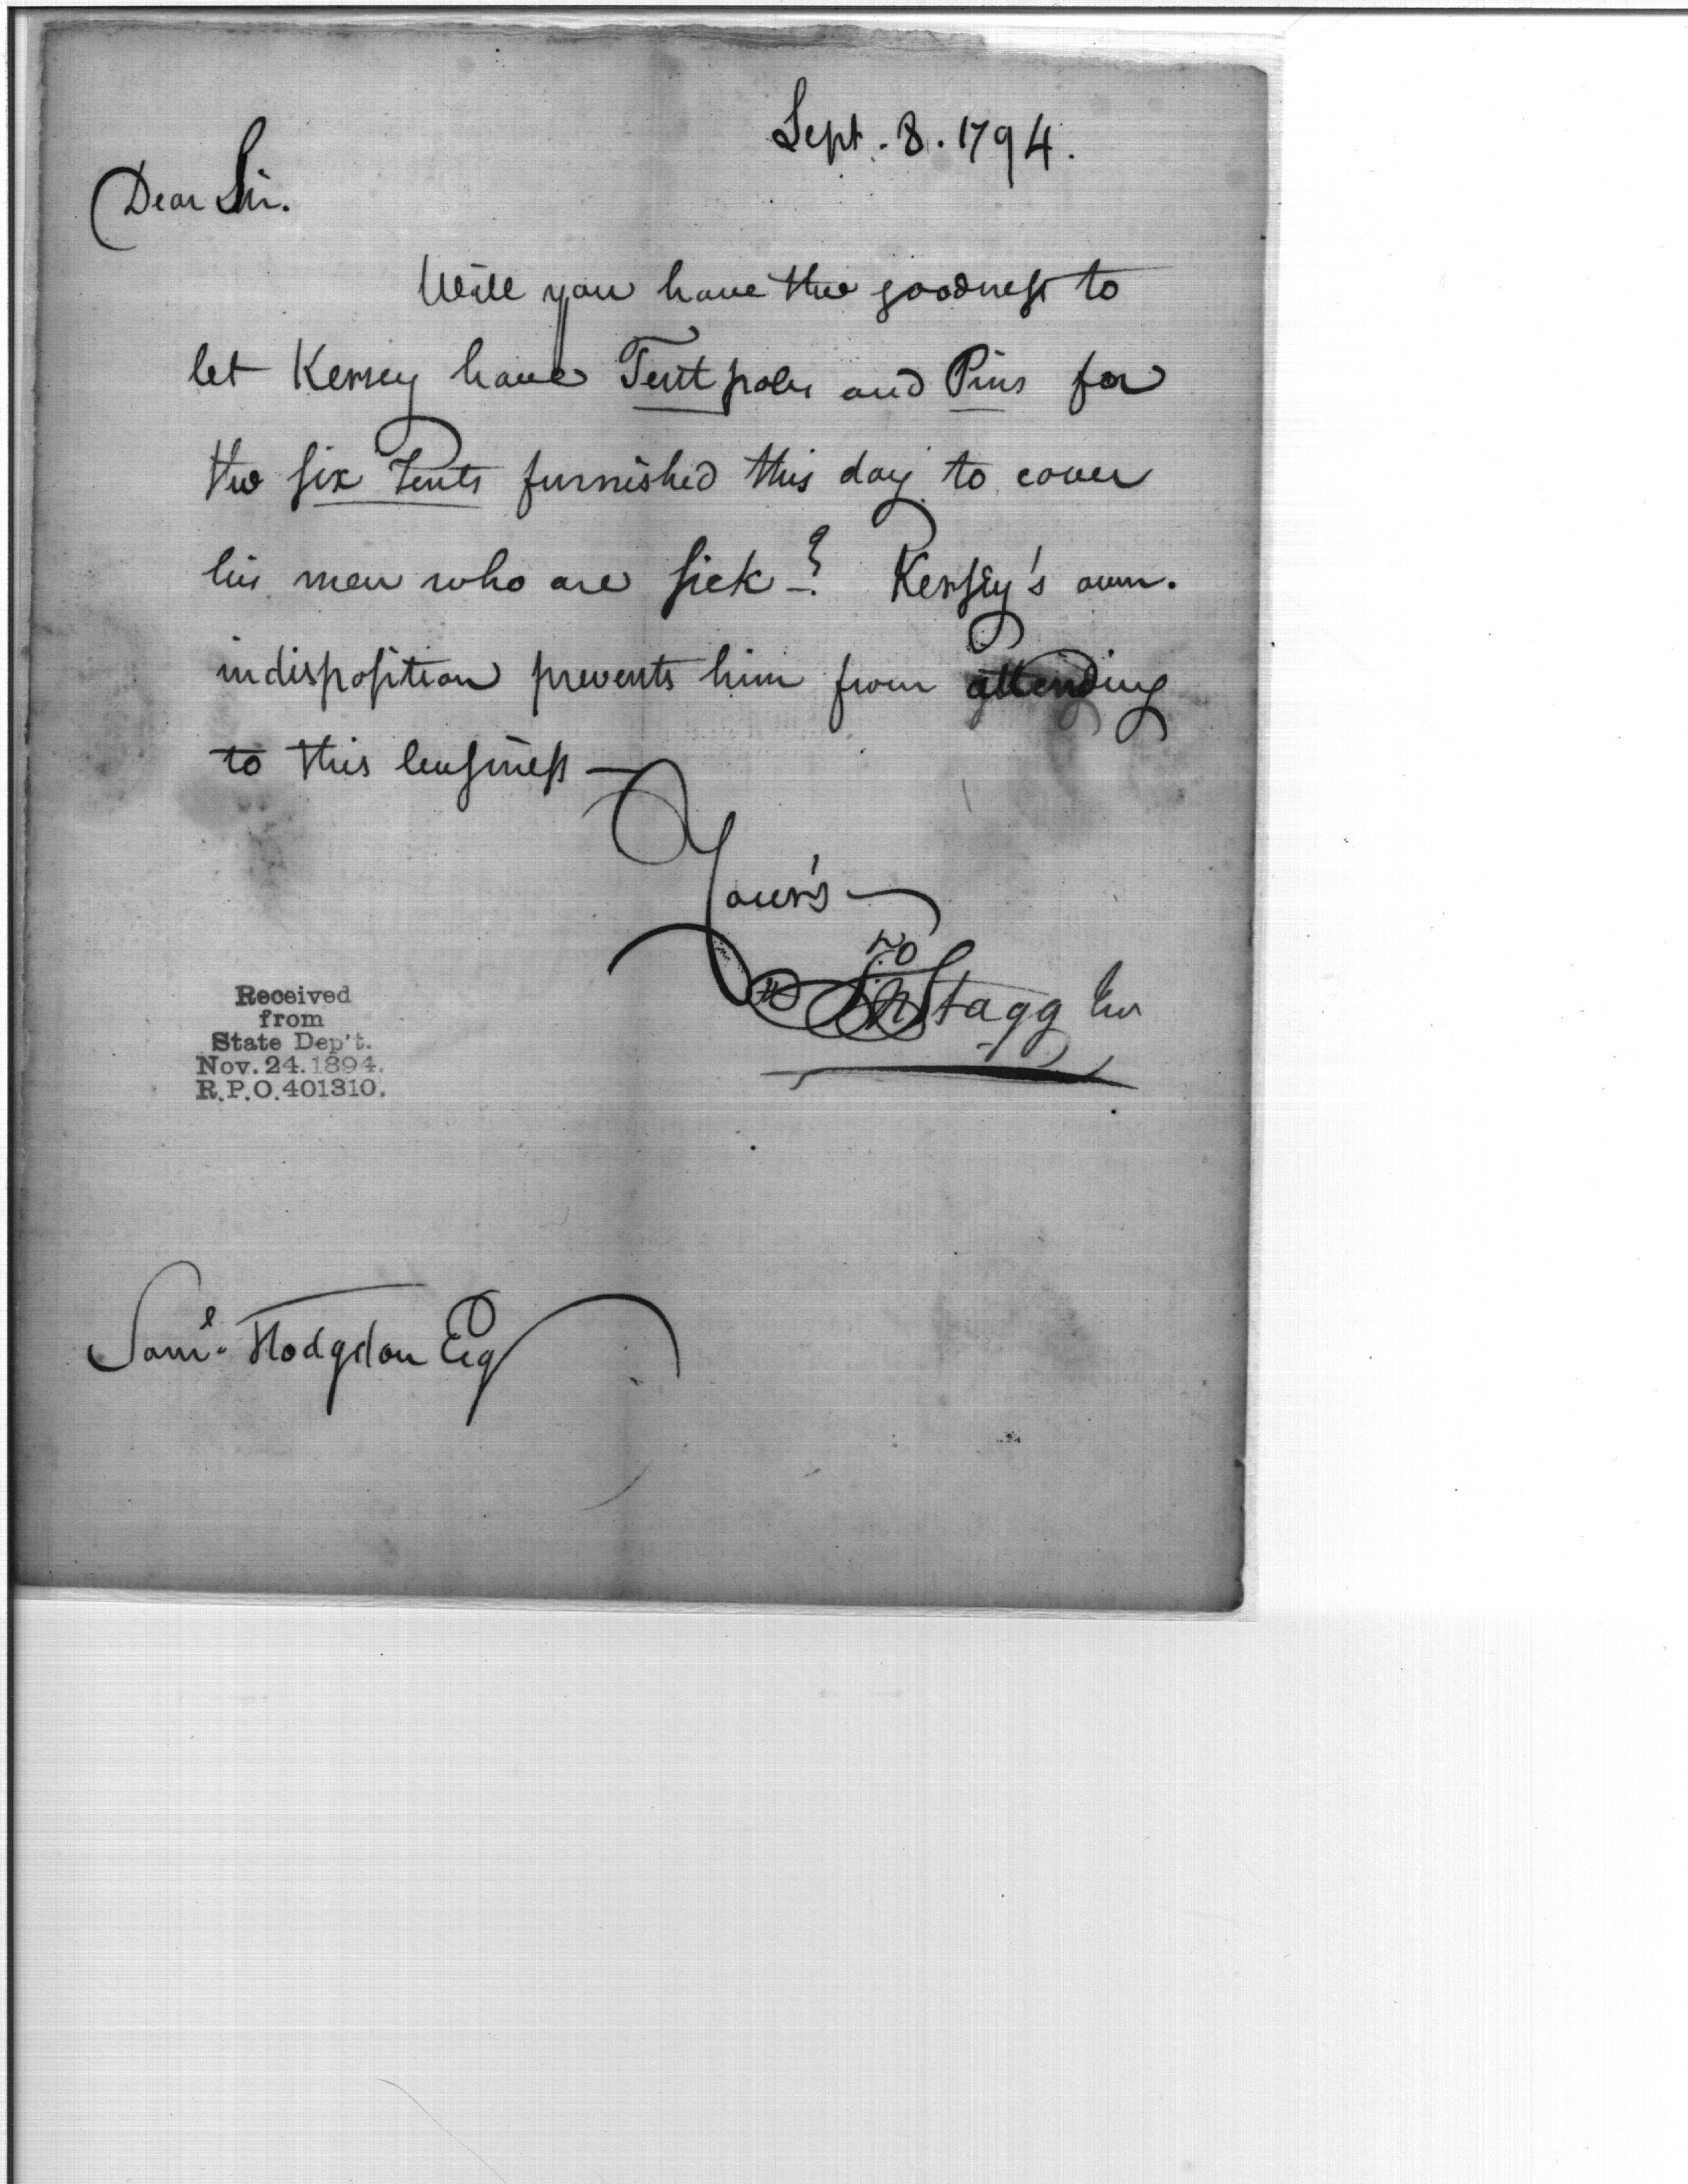 Sept. 8. 1794.
Dear Sir.
Will you have the goodness to
let Kersey have Tent poles and Pins for
the six Tents furnished this day to cover
his men who are sick -? Kersey's own.
indisposition prevents him from attending
to this business —
Your's —
Jno Stagg Jur
Received
from
State Dep't.
Nov. 24. 1894.
R.P.O. 401310.
Saml. Hodgdon Esq